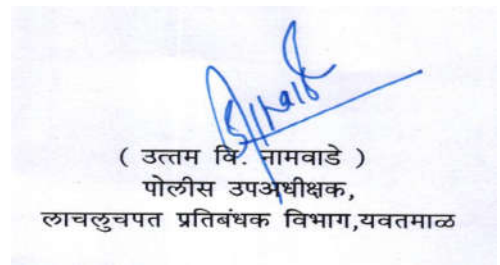 ( उत्तम वि. नामवाडे )
पोलीस उपअधीक्षक,
लाचलुचपत प्रतिबंधक विभाग,यवतमाळ